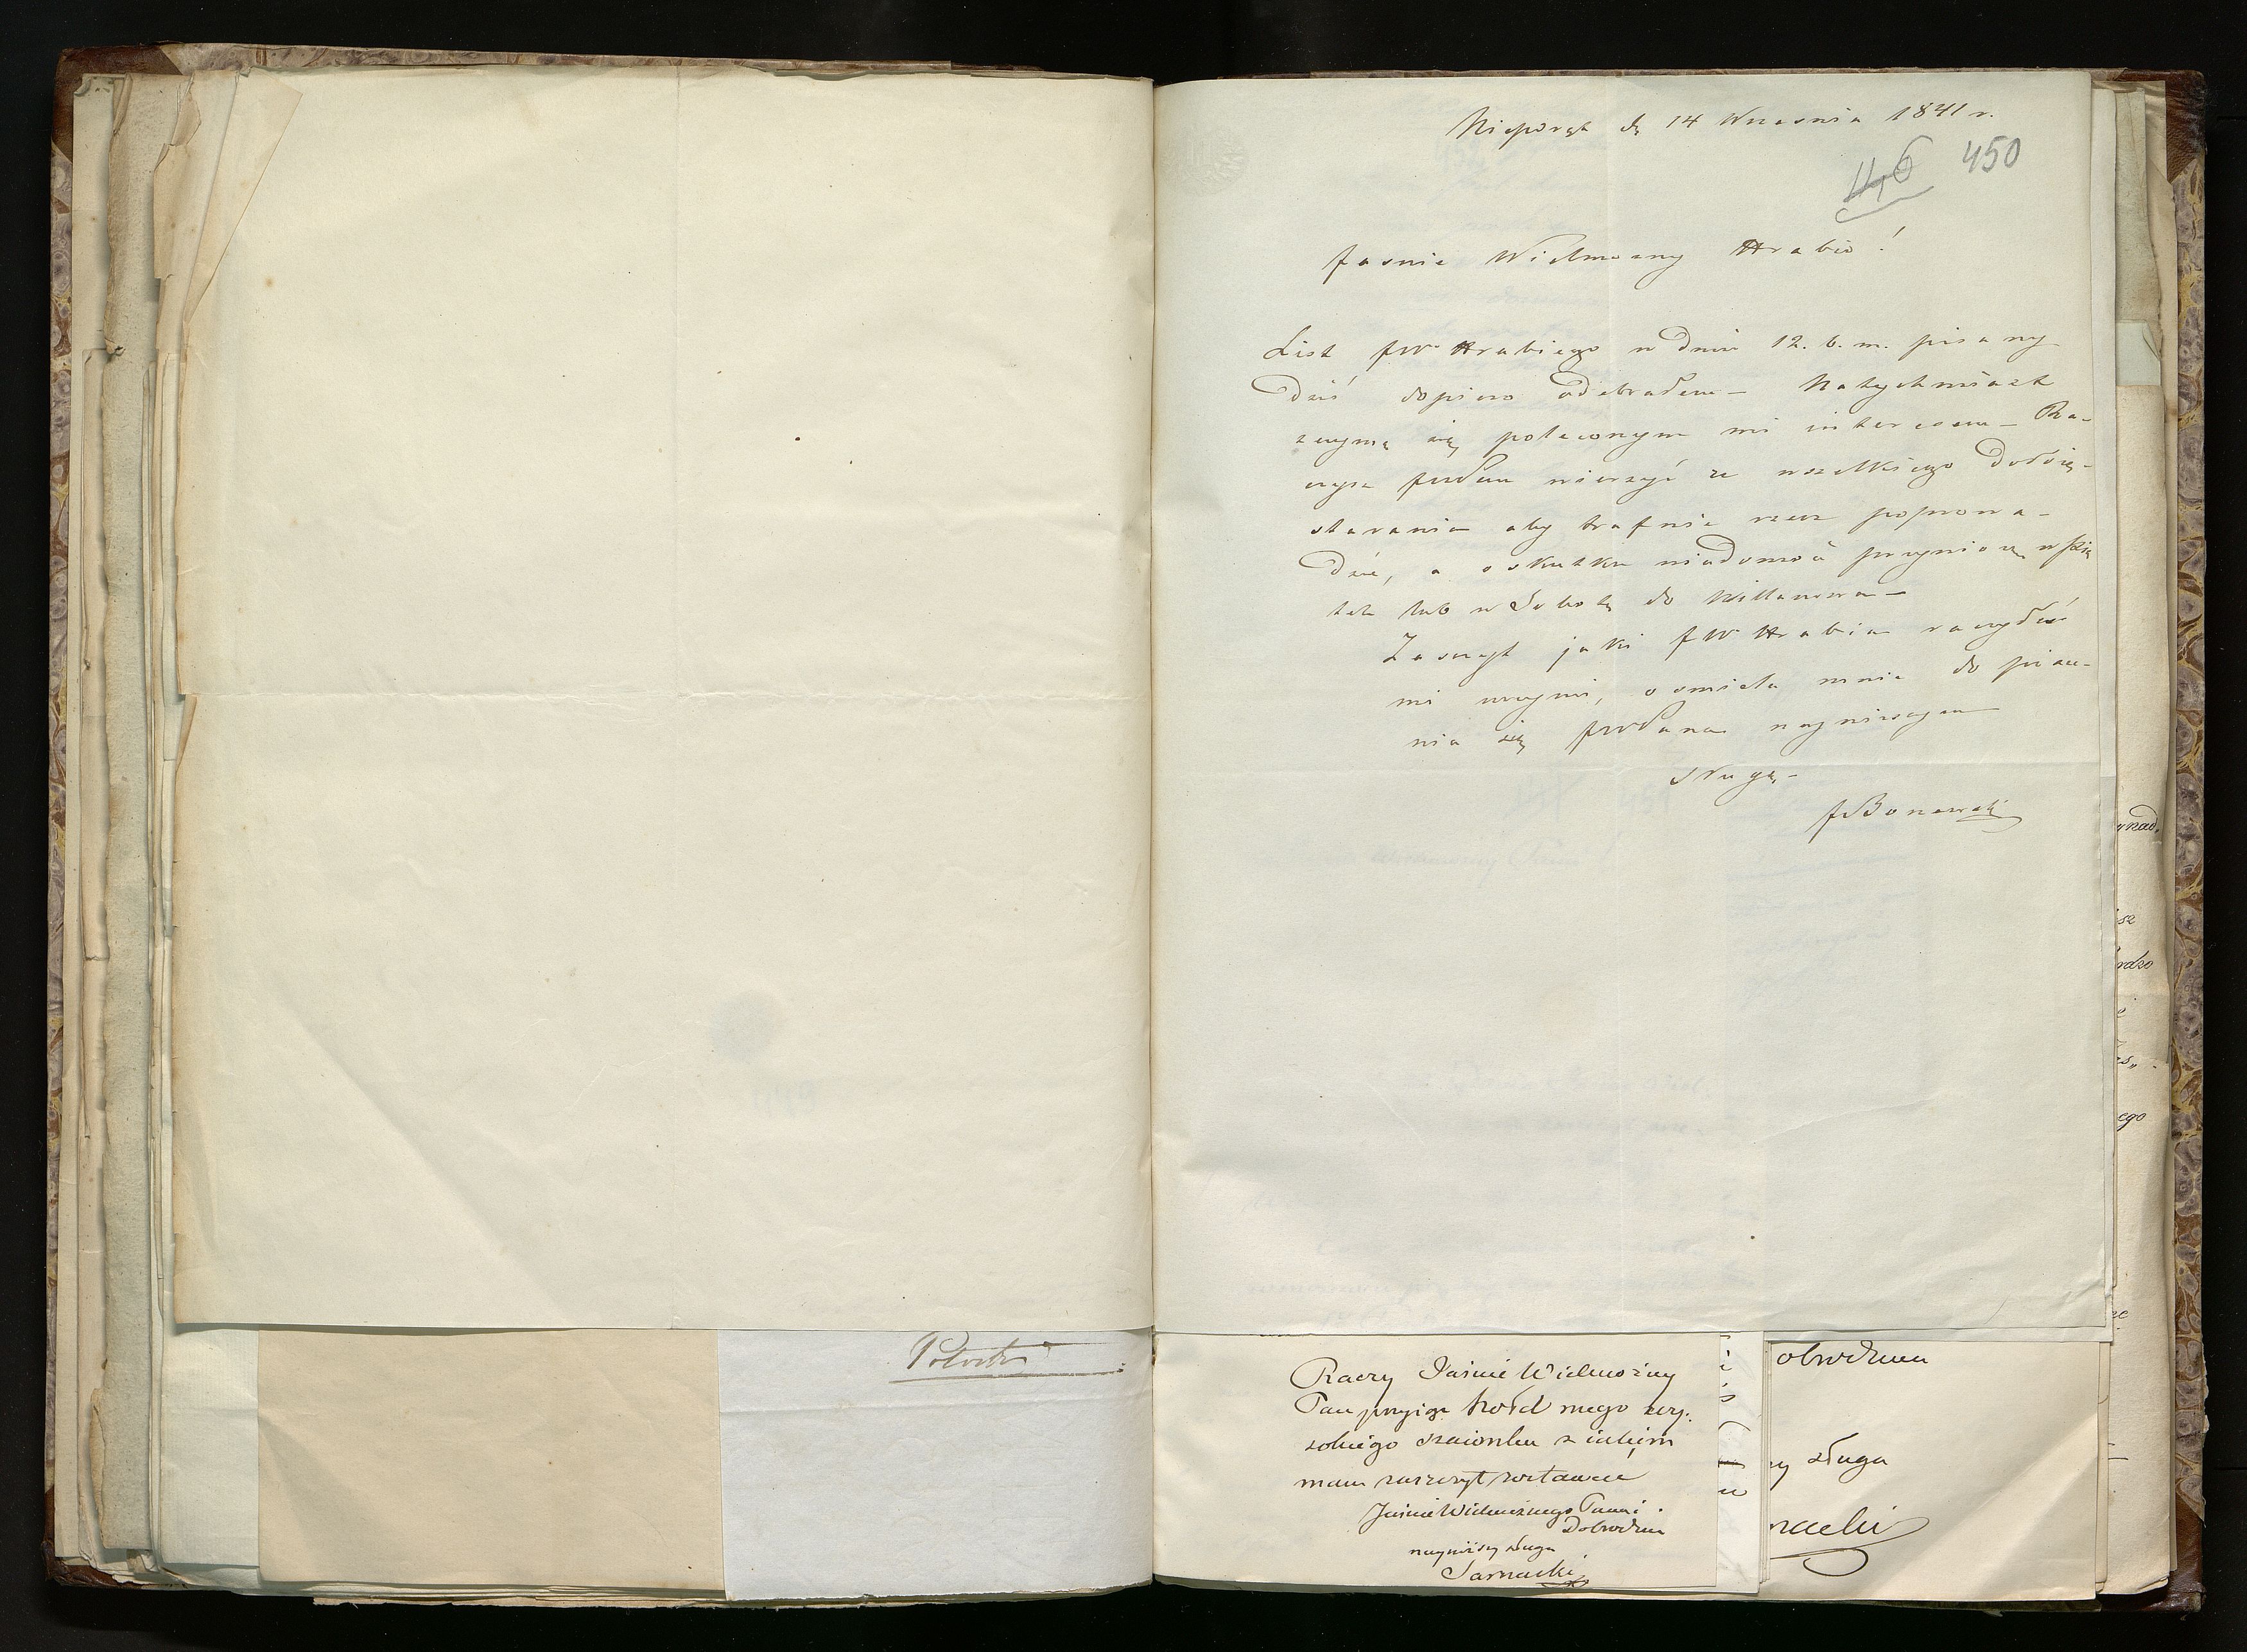 Nieporęt dn 14 Wrzesnia 1841 r.
146 450
Jasnie Wielmozny Hrabio!
List JW Hrabiego w dniu 12. b. m. pisany
dziś dopiero odebrałem – Natychmiast
zaymę się poleconym mi interesem – Ra-
czysz wierzyć ze wszelkiego dołożę
starania aby trafnie rzecz poprowa-
dzić, a o skutku wiadomość przyniosę w Pią
tek lub w Sobotę do Willanowa –
Zaszczyt jaki JW Hrabia raczyłeś
mi uczyni, osmiela mnie do pisa-
nia się JWPana nayniższym
sługą –
JBonawski
Potocki
Raczy Jaśnie Wielmożny
Pan przyiąć hołd mego wy-
sokiego szacunku z iakim
mam zaszczyt zostawać
Jaśnie Wielmożnego Pana
Dobrodzieia
nayniższy sługa
Sarnacki
obrodzieia
y sługa
nacki
rdzo
ego